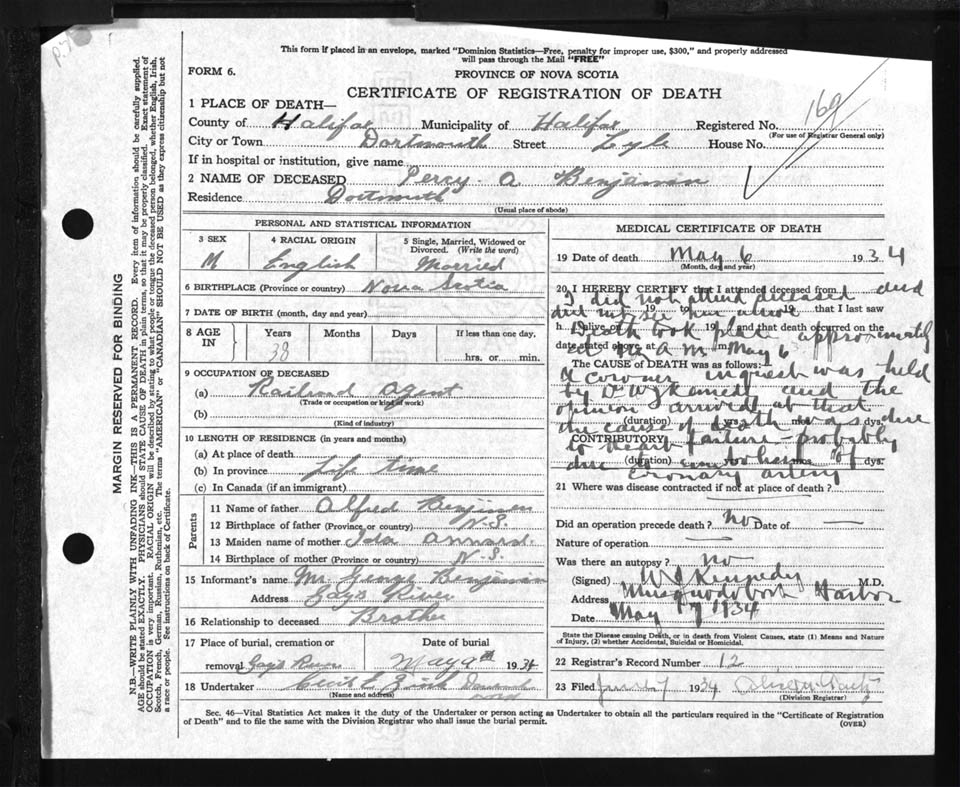 This form if placed in an envelope, marked "Dominion Statistics—Free, penalty for improper use, $300," and properly addressed
will pass through the Mail "FREE"
FORM 6.
PROVINCE OF NOVA SCOTIA
CERTIFICATE OF REGISTRATION OF DEATH
169
1 PLACE OF DEATH—
County of Halifax Municipality of Halifax Registered No.
(For use of Registrar General only)
City or Town Dartmouth Street Lyle House No.
If in hospital or institution, give name
2 NAME OF DECEASED Percy A Benjamin
Residence Dartmouth
(Usual place of abode)
PERSONAL AND STATISTICAL INFORMATION
3 SEX 4 RACIAL ORIGIN 5 Single, Married, Widowed or Divorced. (Write the word)
M English Married
6 BIRTHPLACE (Province or country) Nova Scotia
7 DATE OF BIRTH (month, day and year)
8 AGE IN Years Months Days If less than one day,
38 hrs. or min.
9 OCCUPATION OF DECEASED
(a) Railroad Agent
(Trade or occupation or kind of work)
(b)
(Kind of industry)
10 LENGTH OF RESIDENCE (in years and months)
(a) At place of death
(b) In province Life time
(c) In Canada (if an immigrant)
Parents
11 Name of father Alfred Benjamin
12 Birthplace of father (Province or country) N.S.
13 Maiden name of mother Ida Annand
14 Birthplace of mother (Province or country) N.S.
15 Informant's name Mr. George Benjamin
Address Gays River
16 Relationship to deceased Brother
17 Place of burial, cremation or Date of burial
removal Gays River May 9th 1934
18 Undertaker Cecil E. Zink Dartmouth
(Name and address)
MEDICAL CERTIFICATE OF DEATH
19 Date of death May 6 1934
(Month, day and year)
20 I HEREBY CERTIFY that I attended deceased from
I did not attend deceased and
19 to 19 that I last saw
did not see him alive
h alive on 19 and that death occurred on the
Death took place approximately
date stated above, at M.
at A M May 6
The CAUSE of DEATH was as follows:
A coroner inquest was held
by Dr W J Kennedy and the
opinion arrived at that
(duration) yrs. mos. dys.
the cause of death was due
CONTRIBUTORY
to heart failure - probably
(duration) yrs. mos. dys.
due to embolism of
coronary artery
21 Where was disease contracted if not at place of death?
Did an operation precede death? No Date of —
Nature of operation —
Was there an autopsy? no
(Signed) W J Kennedy M.D.
Address Musquodoboit Harbor
Date May 17 1934
State the Disease causing Death, or in death from Violent Causes, state (1) Means and Nature
of Injury, (2) whether Accidental, Suicidal or Homicidal.
22 Registrar's Record Number 12
23 Filed June 7 1934
(Division Registrar)
Sec. 46—Vital Statistics Act makes it the duty of the Undertaker or person acting as Undertaker to obtain all the particulars required in the "Certificate of Registration
of Death" and to file the same with the Division Registrar who shall issue the burial permit.
(OVER)
MARGIN RESERVED FOR BINDING
N.B.—WRITE PLAINLY WITH UNFADING INK—THIS IS A PERMANENT RECORD. Every item of information should be carefully supplied.
AGE should be stated EXACTLY. PHYSICIANS should STATE CAUSE OF DEATH in plain terms, so that it may be properly classified. Exact statement of
OCCUPATION is very important. RACIAL ORIGIN will be described by stating to what people or tongue the deceased person belonged, whether English, Irish,
Scotch, French, German, Russian, Ruthenian, etc. The terms "AMERICAN" or "CANADIAN" SHOULD NOT BE USED as they express citizenship but not
a race or people. See instructions on back of Certificate.